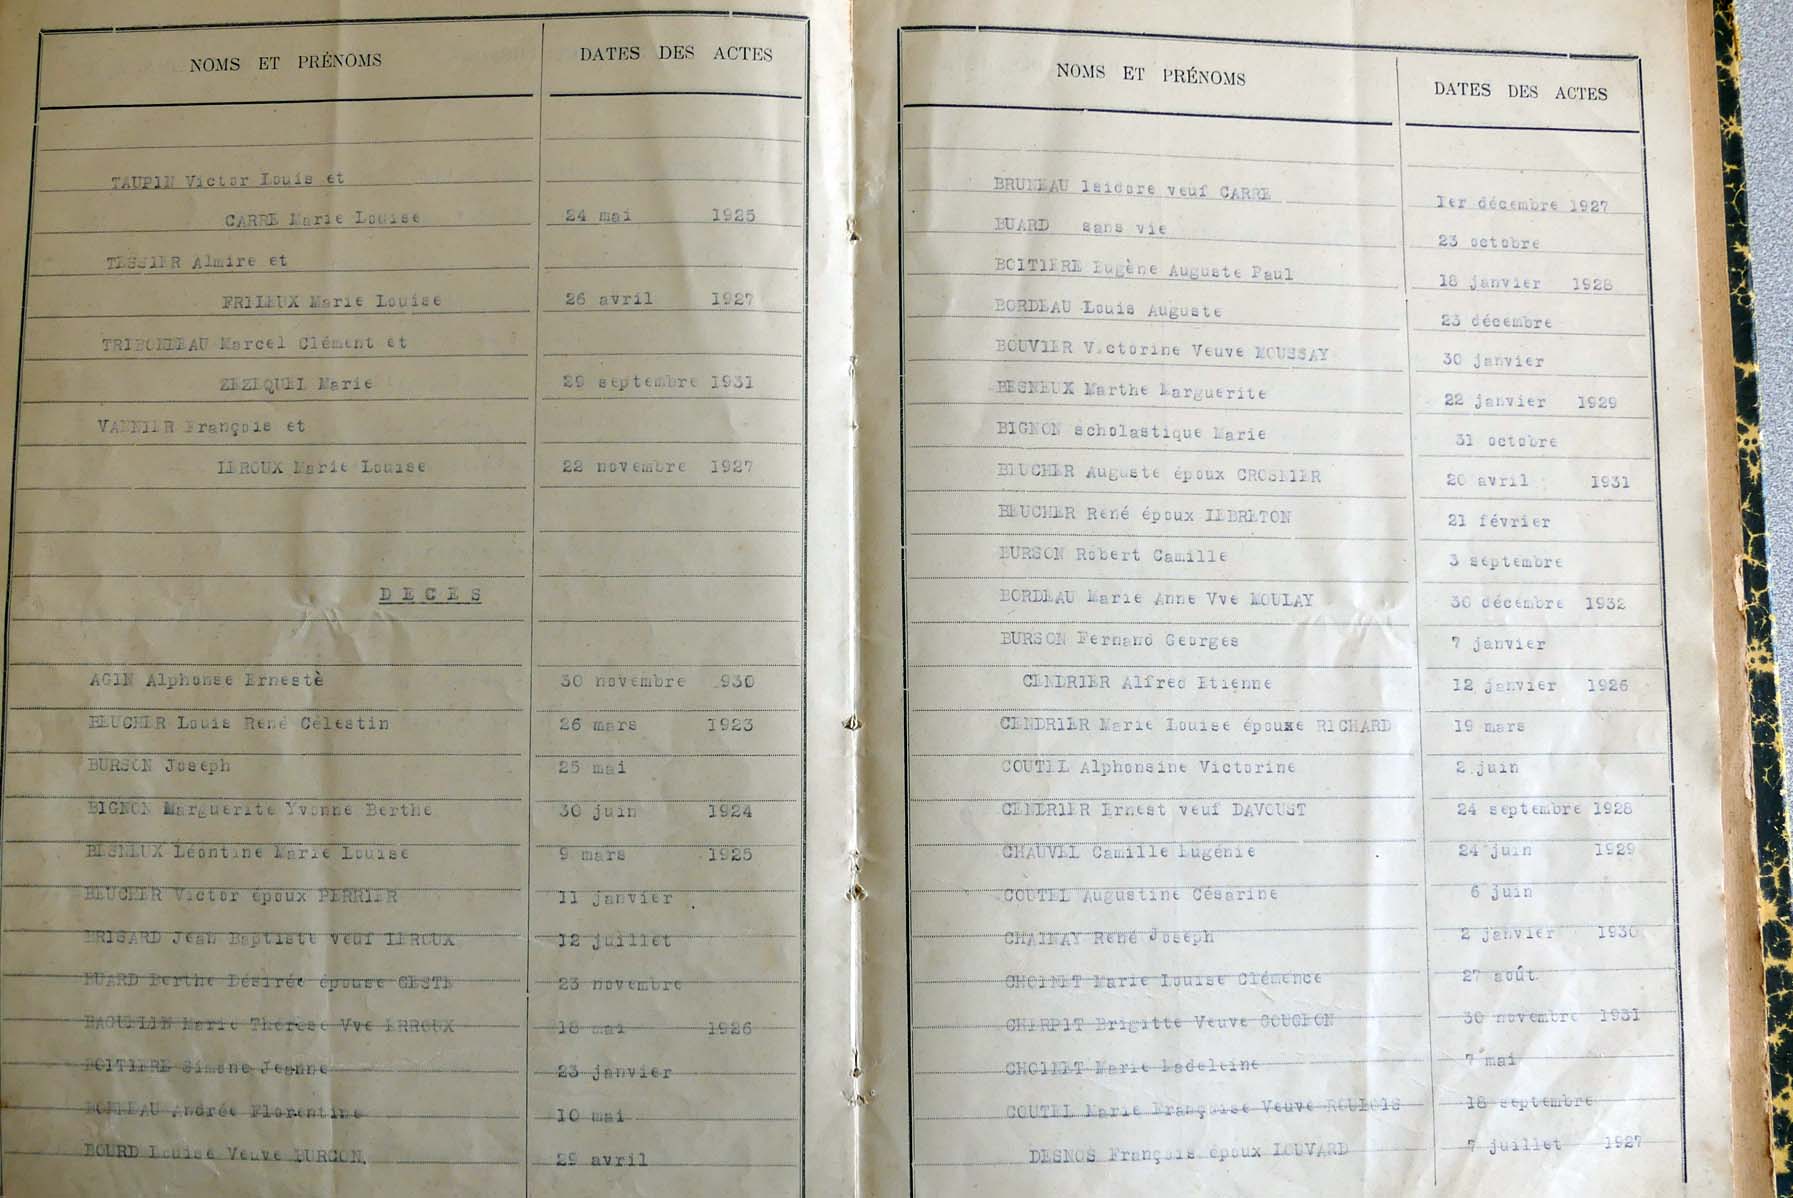 NOMS ET PRÉNOMS DATES DES ACTES
TAUPIN Victor Louis et
CARRE Marie Louise 24 mai 1925
TESSIER Almire et
FRILEUX Marie Louise 26 avril 1927
TRIBONNEAU Marcel Clément et
ZEZEQUEL Marie 29 septembre 1931
VANNIER François et
LEROUX Marie Louise 22 novembre 1927
DECES
AGIN Alphonse Ernestè 30 novembre 930
BEUCHER Louis René Célestin 26 mars 1923
BURSON Joseph 25 mai
BIGNON Marguerite Yvonne Berthe 30 juin 1924
BESNEUX Léontine Marie Louise 9 mars 1925
BEUCHER Victor époux PERRIER 11 janvier
BRISARD Jean Baptiste veuf LEROUX 12 juillet
BUARD Berthe Désirée épouse GESTE 23 novembre
Marie Thérèse Vve 18 mai 1926
BOITIERE Simone Jeanne 23 janvier
Andrée Florentine 10 mai
BOURD Louise Veuve 29 avril
NOMS ET PRÉNOMS DATES DES ACTES
BRUNEAU Isidore veuf CARRE 1er décembre 1927
BUARD sans vie 23 octobre
BOITIERE Eugène Auguste Paul 18 janvier 1928
BORDEAU Louis Auguste 23 décembre
BOUVIER Victorine Veuve MOUSSAY 30 janvier
BESNEUX Marthe Marguerite 22 janvier 1929
BIGNON scholastique Marie 31 octobre
BEUCHER Auguste époux CROSNIER 20 avril 1931
BEUCHER René époux LEBRETON 21 février
BURSON Robert Camille 3 septembre
BORDEAU Marie Anne Vve MOULAY 30 décembre 1932
BURSON Fernand Georges 7 janvier
CENDRIER Alfred Etienne 12 janvier 1926
CENDRIER Marie Louise épouxe RICHARD 19 mars
COUTEL Alphonsine Victorine 2 juin
CENDRIER Ernest veuf DAVOUST 24 septembre 1928
CHAUVEL Camille Eugénie 24 juin 1929
COUTEL Augustine Césarine 6 juin
René Joseph 2 janvier 1930
CHOINET Marie Louise Clémence 27 août
CHERPIT Brigitte Veuve GOUGEON 30 novembre 1931
CHOINET Marie Madeleine 7 mai
COUTEL Marie Françoise Veuve 18 septembre
DESNOS François époux LOUVARD 7 juillet 1927